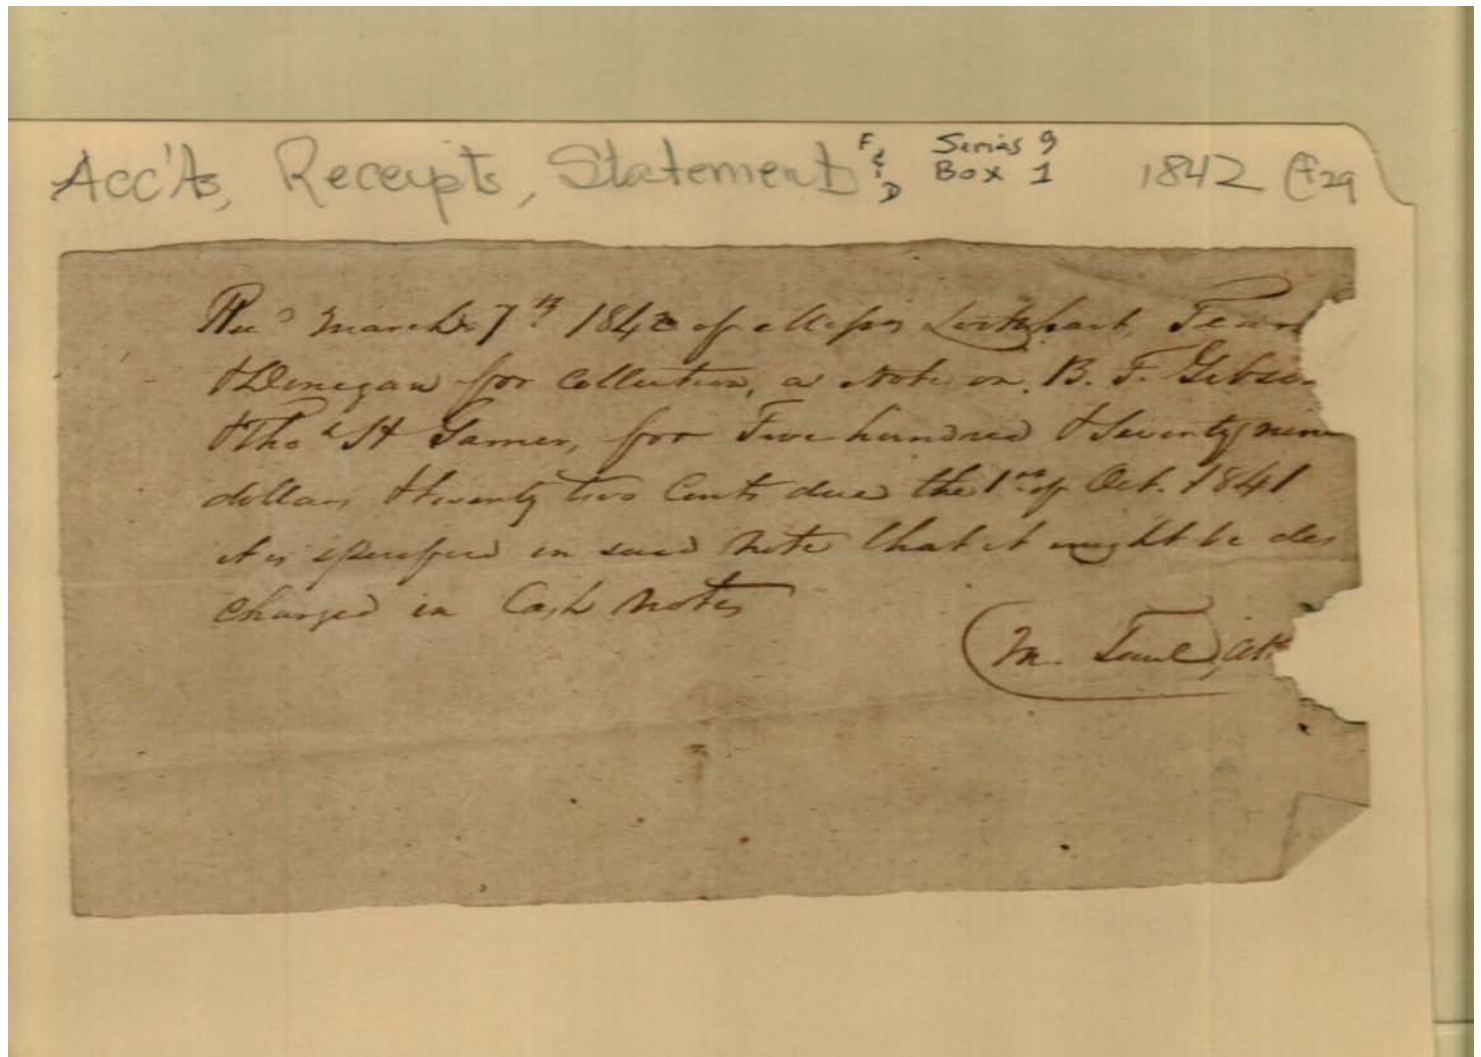 Acc'ts, Receipts, Statement F & D Series 9
Box 1 1842 F29
Rec^d March 7^th 1842 of Messrs Lockhart,
& Donegan for Collection, a Note on B. F. Gibson
& Tho^s H Garner, for Five hundred & Seventy nine
dollars & twenty two Cents due the 1^st of Oct. 1841
it is specified in said Note that it might be dis
charged in Cash Notes
M.